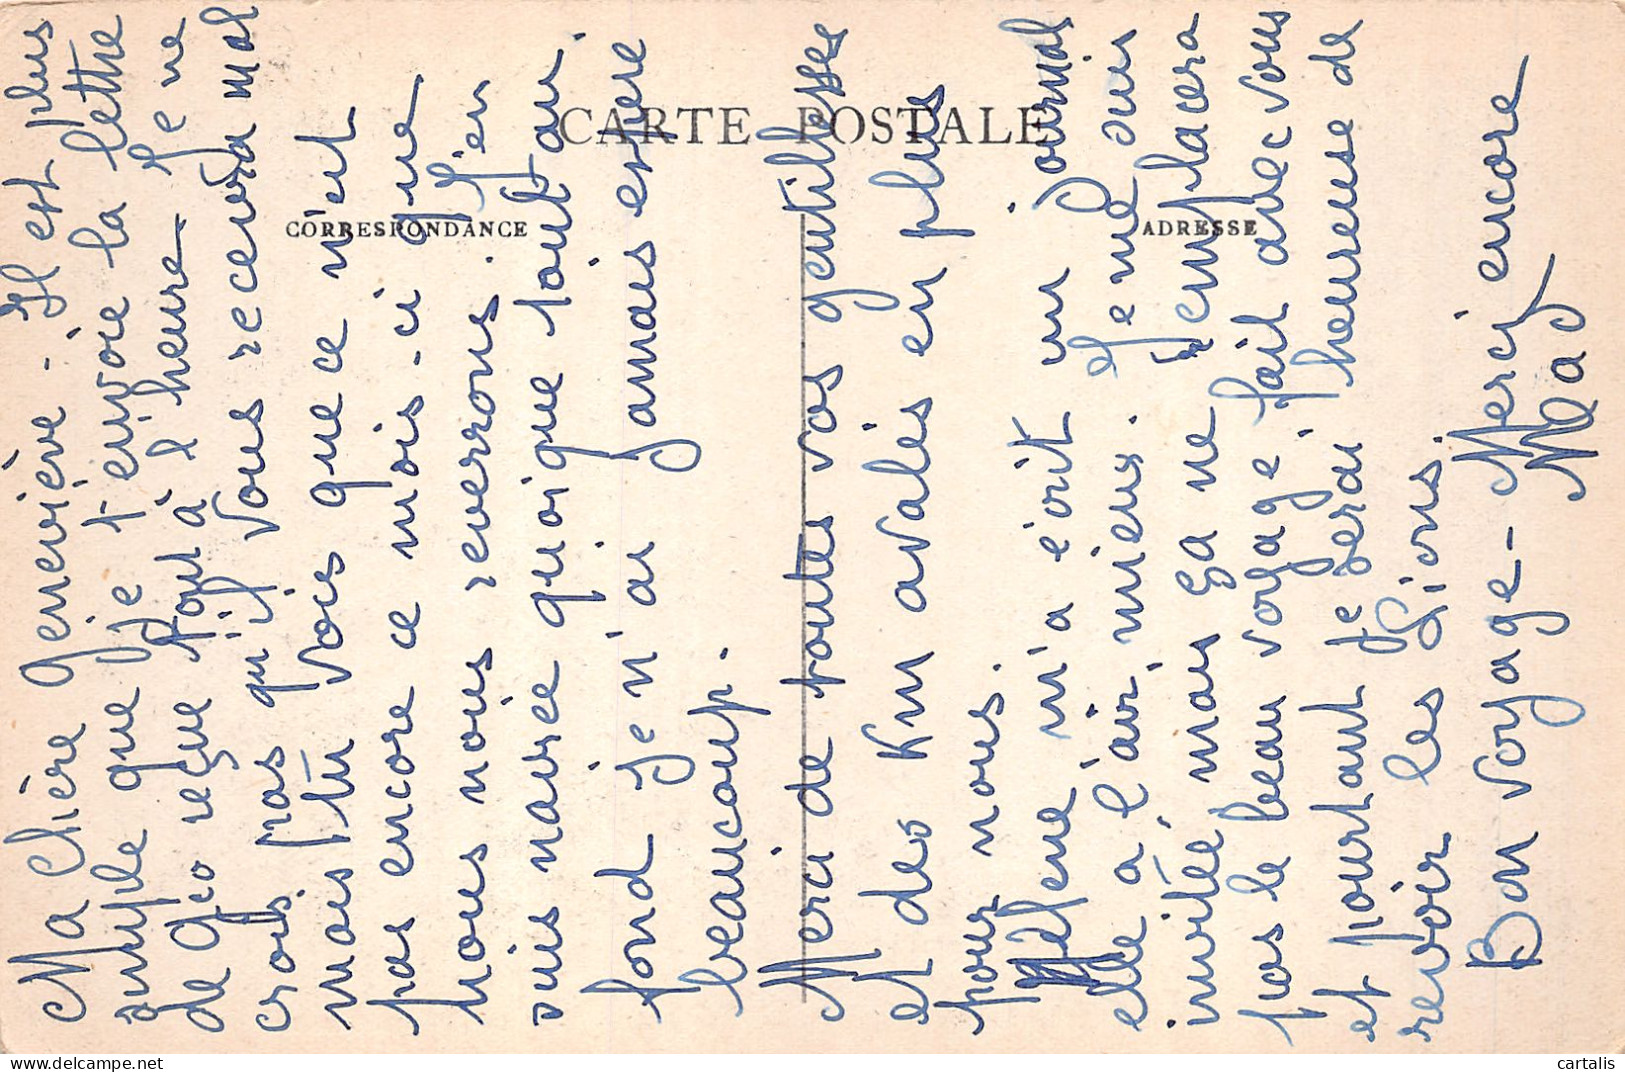 CARTE POSTALE
CORRESPONDANCE
ADRESSE
Ma Chère Geneviève - Il est plus
simple que je t'envoie la lettre
de Gio reçue tout à l'heure - Je ne
crois pas qu'il vous recevra mal
mais tu vois que ce n'est
pas encore ce mois-ci que
nous nous reverrons. J'en
suis navrée quoique tout au
fond je n'ai jamais espéré
beaucoup.
Merci de toutes vos gentillesses
et des km avalés en plus
pour nous.
Hélène m'a écrit un journal
elle a l'air mieux. Je me suis
invitée, mais ça ne remplacera
pas le beau voyage fait avec vous
et pourtant je serai heureuse de
revoir les Sions.
Bon voyage - Merci encore
Mag
cartalis